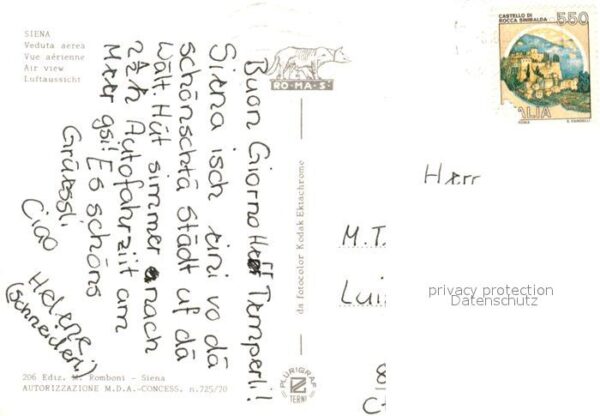 SIENA
Veduta aerea
Vue aérienne
Air view
Luftaussicht
RO-MA-S
CASTELLO DI
ROCCA SINIBALDA
550
ALIA
ROMA
Buon Giorno Herr Temperli!
Siena isch eini vo dä
schönschtä Städt uf dä
Wält Hüt simmer nach
2½h Autofahrziit am
Meer gsi! Es schöns
Grüessli,
Ciao
Helene
(Schneideri)
da fotocolor Kodak Ektachrome
PLURIGRAF
TERNI
Herr
M.T.
Lui
8
privacy protection
Datenschutz
206 Ediz. M. Romboni - Siena
AUTORIZZAZIONE M.D.A.-CONCESS. n.725/70